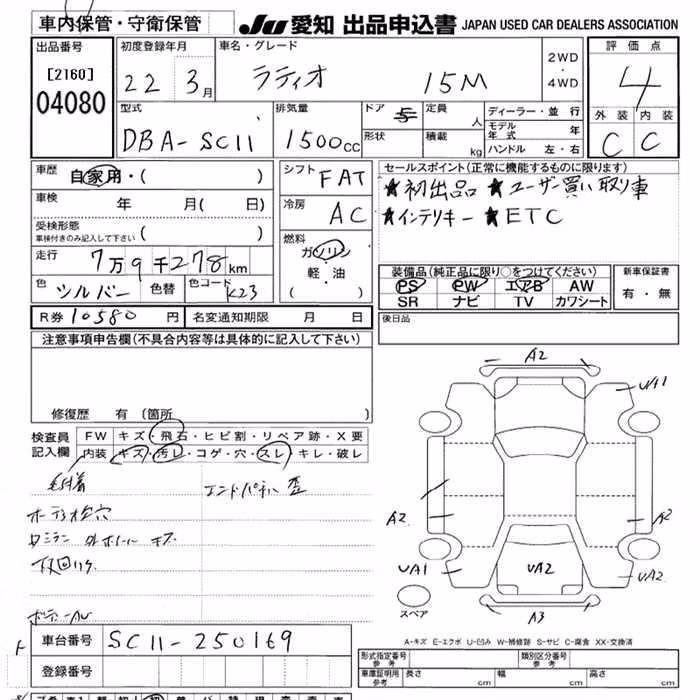 車内保管・守衛保管
JU 愛知 出品申込書 JAPAN USED CAR DEALERS ASSOCIATION
出品番号
[2160]
04080
初度登録年月
22 3月
車名・グレード
ラティオ 15M
2WD
・
4WD
評価点
4
外装 内装
C C
型式
DBA-SC11
排気量
1500cc
ドア 5
形状
定員 人
積載 kg
ディーラー・並行
モデル年式 年
ハンドル 左・右
車歴 自家用・( )
車検 年 月( 日)
受検形態
車検付きのみ記入して下さい ( )
走行 7万9千278km
色 シルバー 色替 色コード K23
シフト FAT
冷房 AC
燃料
ガソリン
軽・油
( )
セールスポイント(正常に機能するものに限ります)
★初出品 ★ユーザー買い取り車
★インテリキー ★ETC
装備品(純正品に限り○をつけてください)
PS PW エアB AW
SR ナビ TV カワシート
新車保証書
有・無
R券 10580 円 名変通知期限 月 日
後日品
注意事項申告欄(不具合内容等は具体的に記入して下さい)
修復歴 有 〔箇所 〕
検査員記入欄
FW キズ・飛石・ヒビ割・リペア跡・X要
内装 キズ・汚レ・コゲ・穴・スレ・キレ・破レ
エンドパネル 歪
オーディオ枠穴
下回りサビ
A2
UA1
A2
A2
UA1
UA2
UA2
A3
スペア
A-キズ E-エクボ U-凹み W-補修跡 S-サビ C-腐食 XX-交換済
車台番号 SC11-250169
登録番号
形式指定番号 参考
類別区分番号 参考
車庫証明用 参考 長さ cm 幅 cm 高さ cm